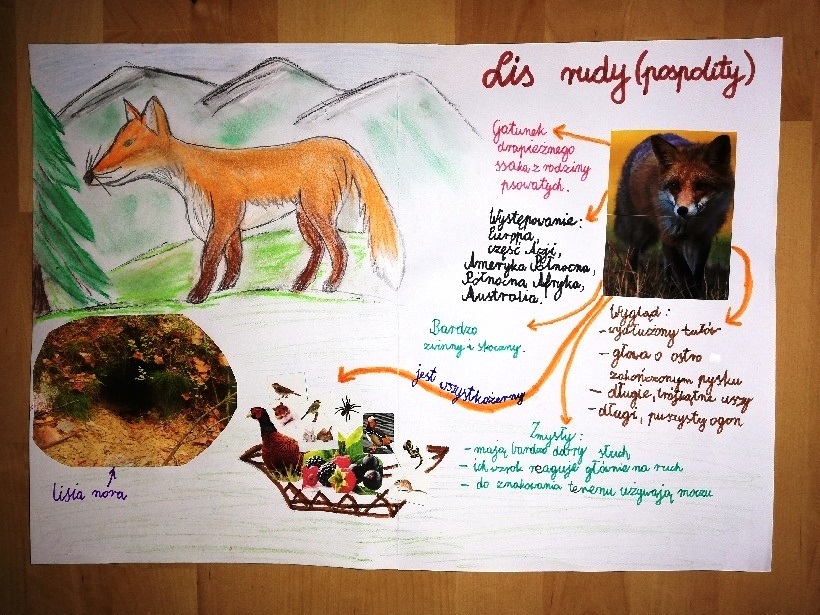 Lis rudy (pospolity)
Gatunek
drapieżnego
ssaka z rodziny
psowatych.
Występowanie:
Europa,
część Azji,
Ameryka Północna,
Północna Afryka,
Australia.
Bardzo
zwinny i skoczny.
jest wszystkożerny
Wygląd:
- wydłużony tułów
- głowa o ostro
zakończonym pysku
- długie, trójkątne uszy
- długi, puszysty ogon
Zmysły:
- mają bardzo dobry słuch
- ich wzrok reaguje głównie na ruch
- do znakowania terenu używają moczu
lisia nora